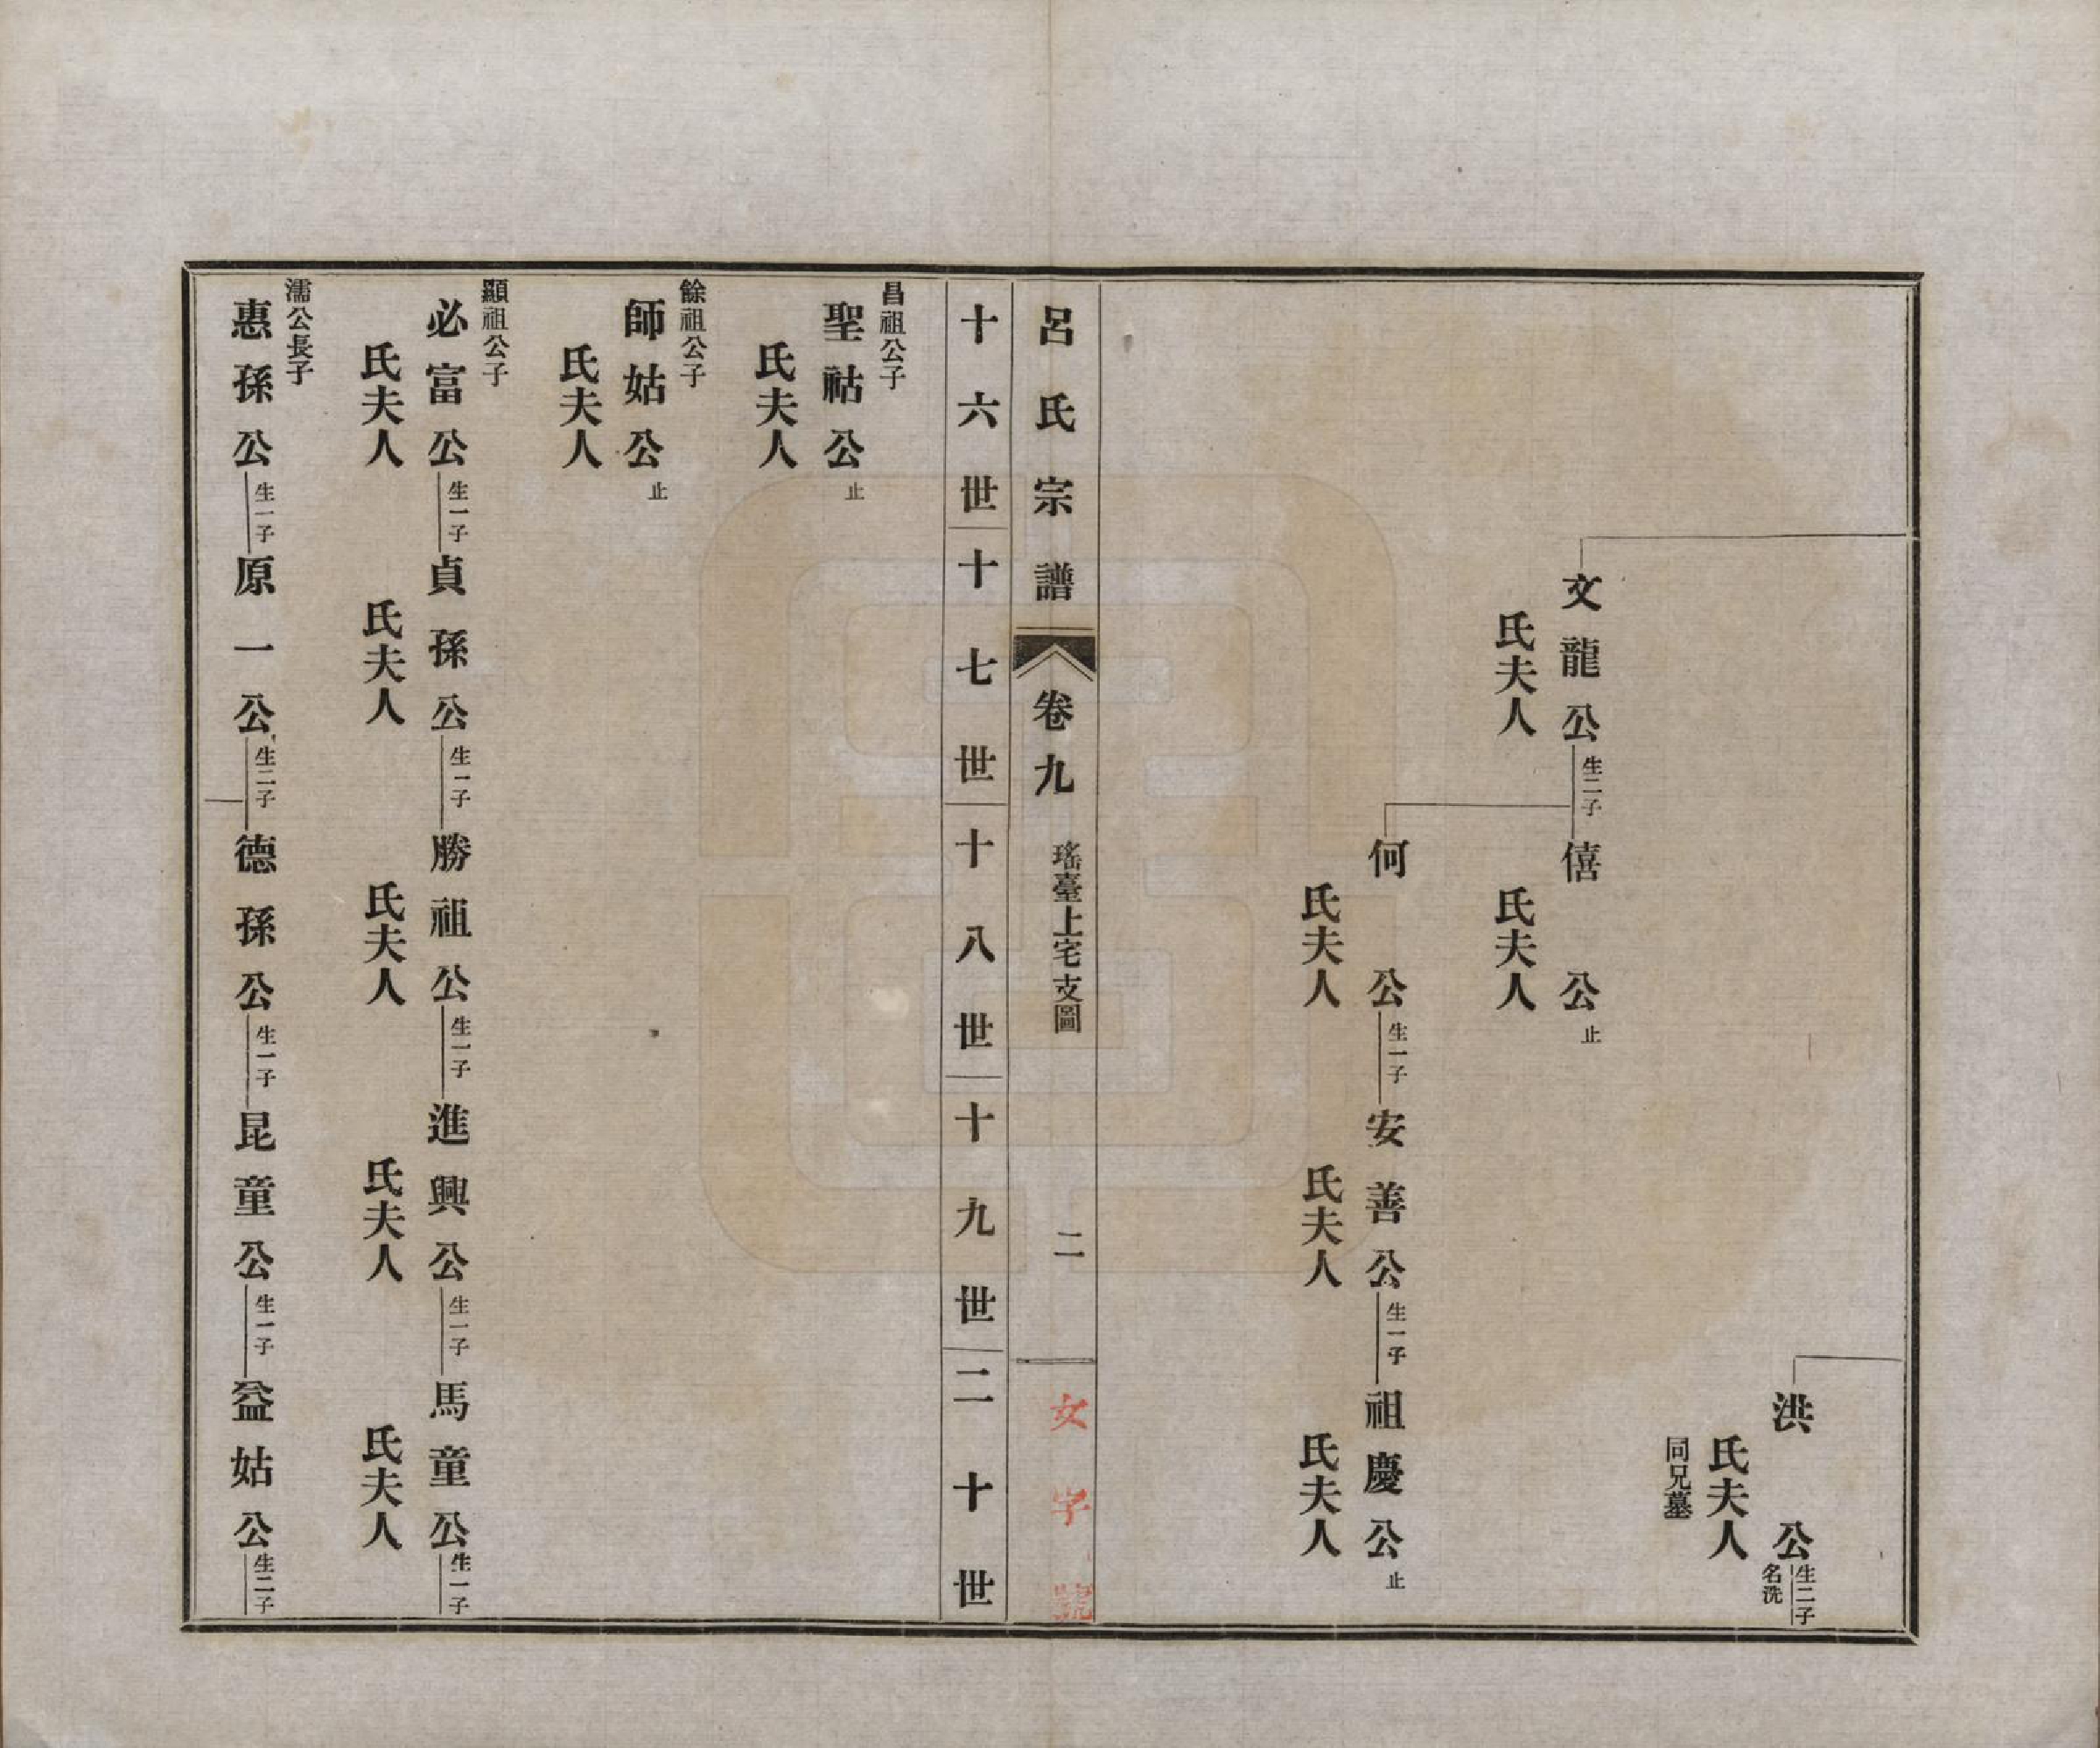 洪公生二子名洗
氏夫人
同兄墓
文龍公生二子僖公止
氏夫人
氏夫人
何公生一子安善公生一子祖慶公止
氏夫人
氏夫人
氏夫人
呂氏宗譜
卷九
瑤臺上宅支圖
二
文字號
十六世
十七世
十八世
十九世
二十世
昌祖公子
聖祜公止
氏夫人
餘祖公子
師姑公止
氏夫人
顯祖公子
必富公生一子貞孫公生一子勝祖公生一子進興公生一子馬童公生一子
氏夫人
氏夫人
氏夫人
氏夫人
氏夫人
濡公長子
惠孫公生一子原一公生二子德孫公生一子昆童公生一子益姑公生二子